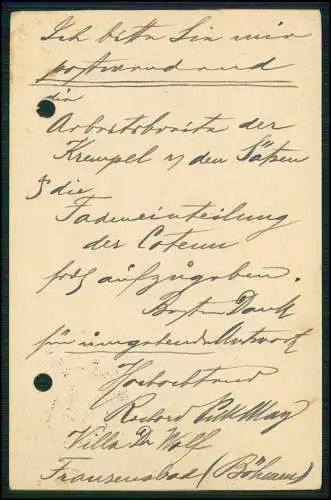 Ich bitte Sie mir
postwendend
die
Arbeitsbreite der
Krempel & den Sätzen
& die
Fadeneinteilung
der
aufzugeben.
Besten Dank
für umgehende Antwort
Hochachtend
Villa Dr Wolf
Franzensbad (Böhmen)